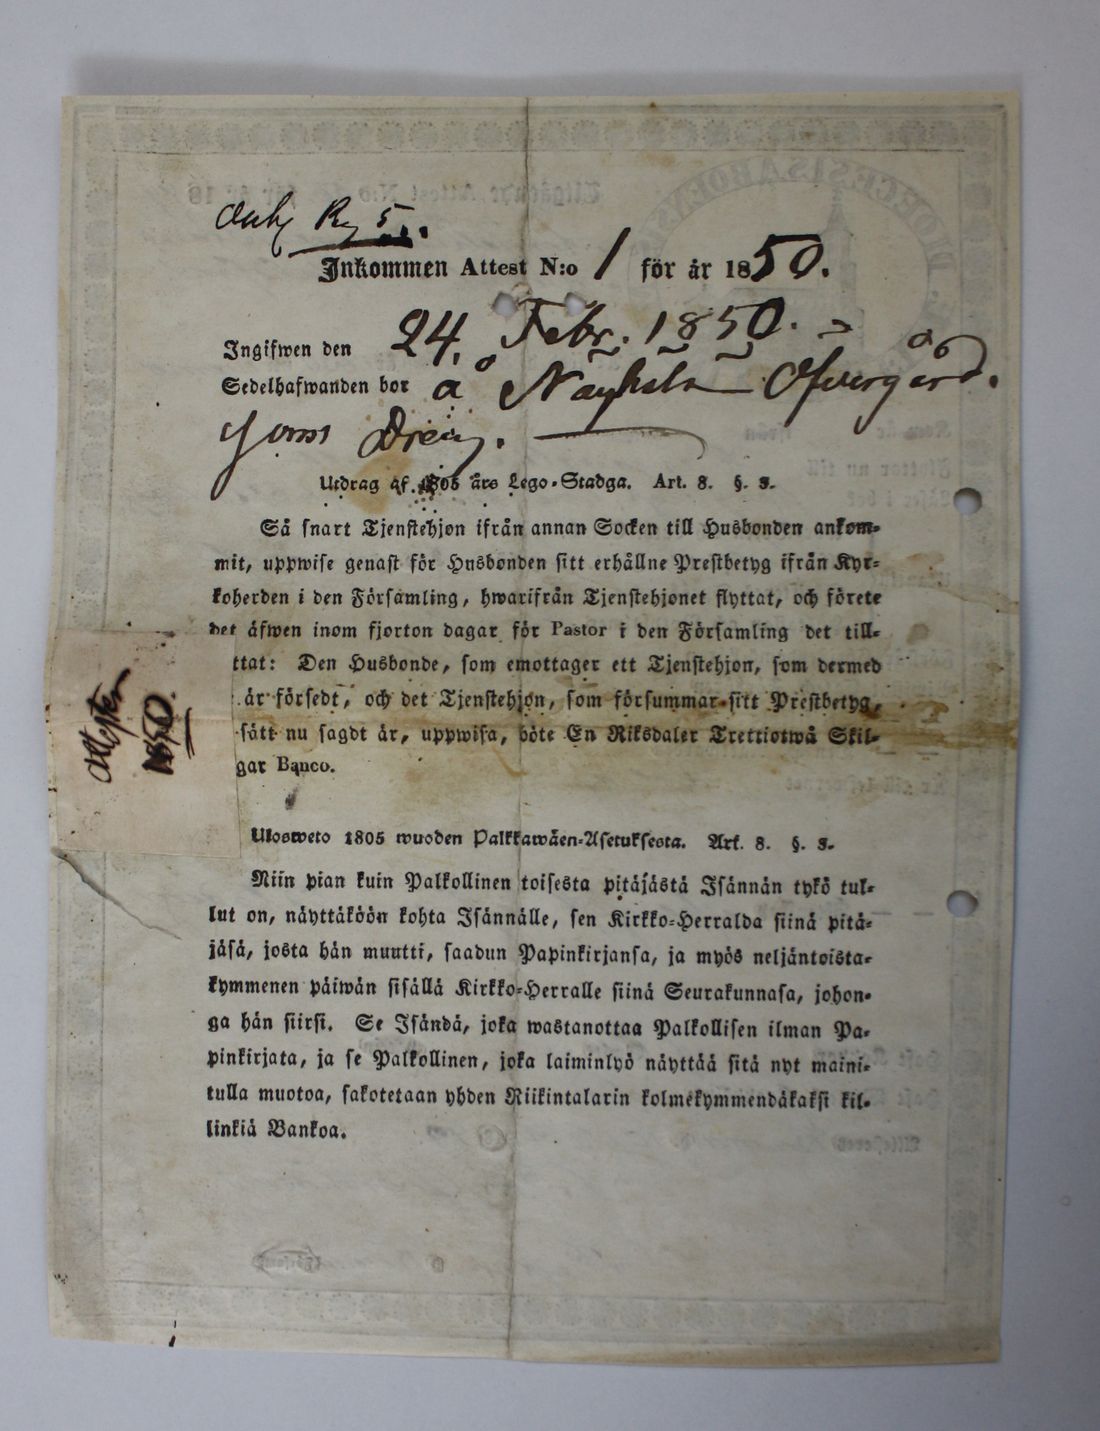 Inkommen Attest N:o 1 för år 1850.
Ingifwen den 24. Febr. 1850.
Sedelhafwanden bor å Nayhela Ofvergård.
som Dreng.
Utdrag af 1805 års Lego-Stadga. Art. 8. §. 3.
Så snart Tjenstehjon ifrån annan Socken till Husbonden ankom-
mit, uppwise genast för Husbonden sitt erhållne Prestbetyg ifrån Kyr-
koherden i den Församling, hwarifrån Tjenstehjonet flyttat, och förete
det äfwen inom fjorton dagar för Pastor i den Församling det till-
ttat: Den Husbonde, som emottager ett Tjenstehjon, som dermed
är försedt, och det Tjenstehjon, som försummar sitt Prestbetyg,
sätt nu sagdt är, uppwisa, böte En Riksdaler Trettiotwå Skil-
gar Banco.
Attester
1850.
Ulosweto 1805 wuoden Palkkawäen-Asetuksesta. Art. 8. §. 3.
Niin pian kuin Palkollinen toisesta pitäjästä Isännän tykö tul-
lut on, näyttäköön kohta Isännälle, sen Kirkko-Herralda siinä pitä-
jäsä, josta hän muutti, saadun Papinkirjansa, ja myös neljäntoista-
kymmenen päiwän sisällä Kirkko-Herralle siinä Seurakunnasa, johon-
ga hän siirsi. Se Isändä, joka wastanottaa Palkollisen ilman Pa-
pinkirjata, ja se Palkollinen, joka laiminlyö näyttää sitä nyt maini-
tulla muotoa, sakotetaan yhden Riikintalarin kolmekymmendäkaksi kil-
linkiä Bankoa.